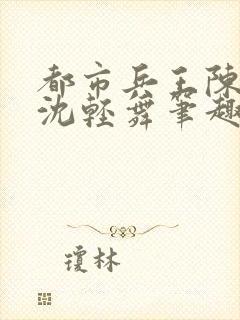 都市兵王陳
沈輕舞筆趣
瓊林